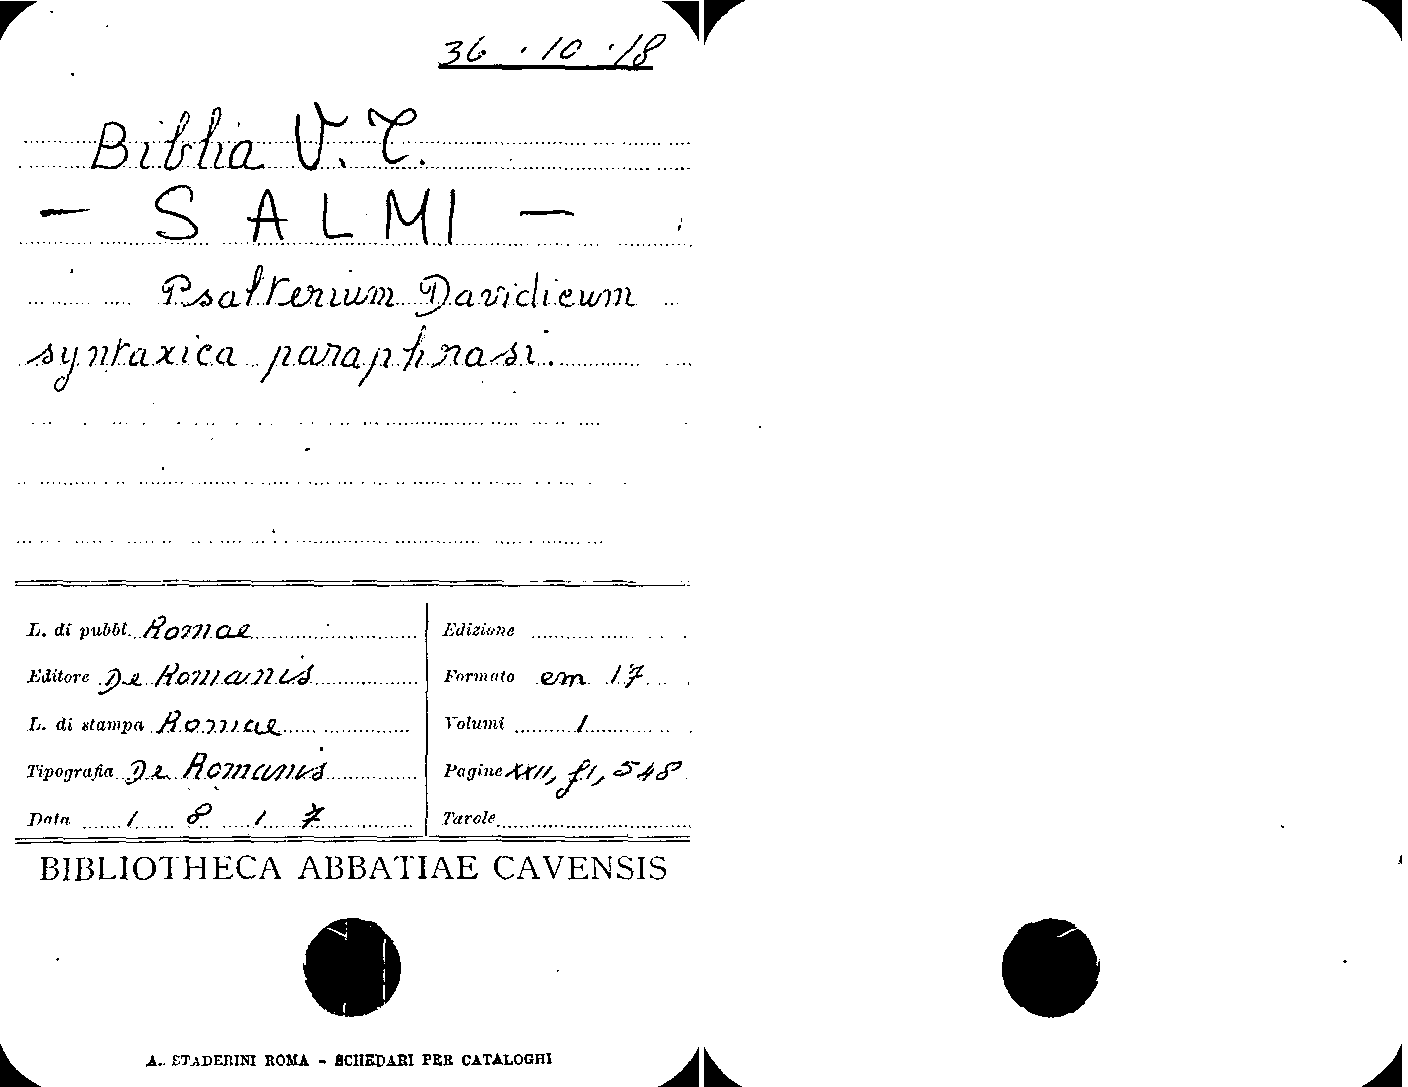 36 . 10 . 18
Biblia V.T.
- SALMI -
Psalterium Davidicum
syntaxica paraphrasi.
L. di pubbl. Romae
Editore De Romanis
L. di stampa Romae
Tipografia De Romanis
Data 1 8 1 7
Edizione
Formato cm 17
Volumi 1
Pagine XXII, f1, 548
Tavole
BIBLIOTHECA ABBATIAE CAVENSIS
A. STADERINI ROMA - SCHEDARI PER CATALOGHI